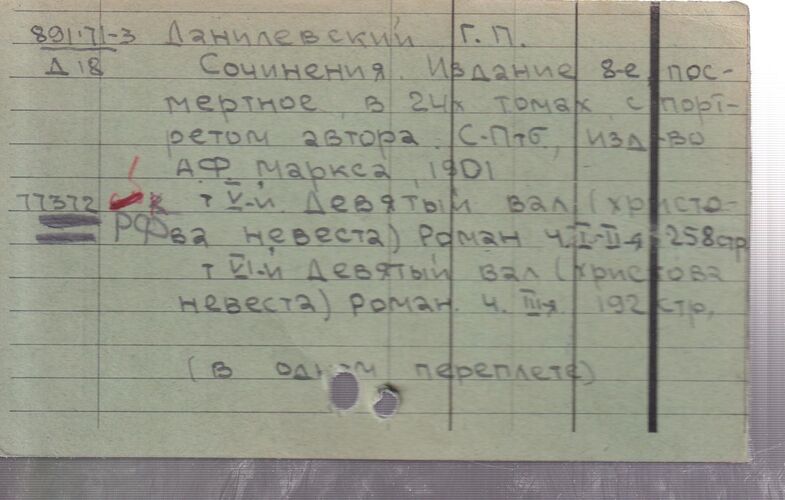 891.71-3 Данилевский Г. П.
Д 18 Сочинения. Издание 8-е, пос-
мертное, в 24х томах, с порт-
ретом автора. С-Птб., изд-во
А.Ф. Маркса, 1901
77372 т V-й. Девятый вал (христо-
РФ ва невеста) Роман ч. I-II-я 258 стр
т VI-й Девятый вал (христова
невеста) роман. ч. III-я. 192 стр.
(в одном переплете)